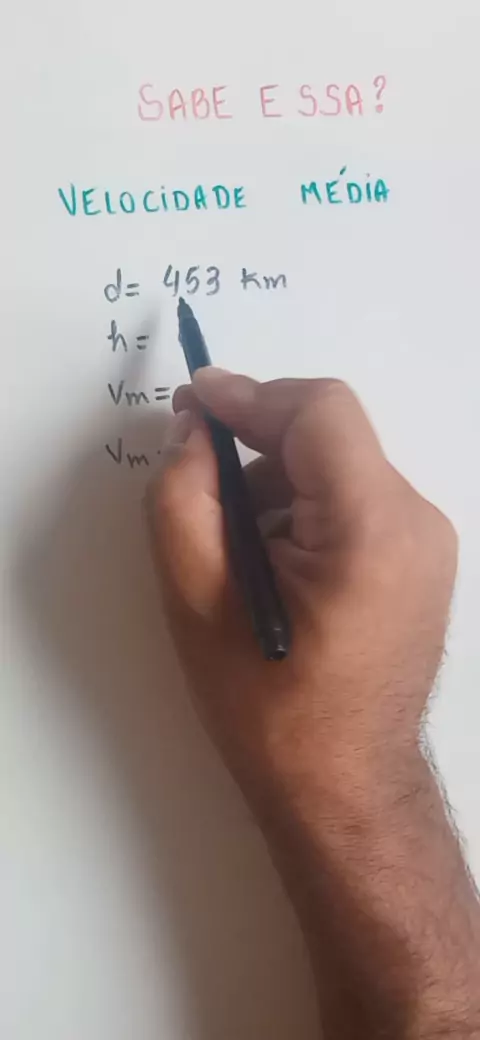 SABE ESSA?
VELOCIDADE MÉDIA
d= 453 km
h=
Vm=
Vm